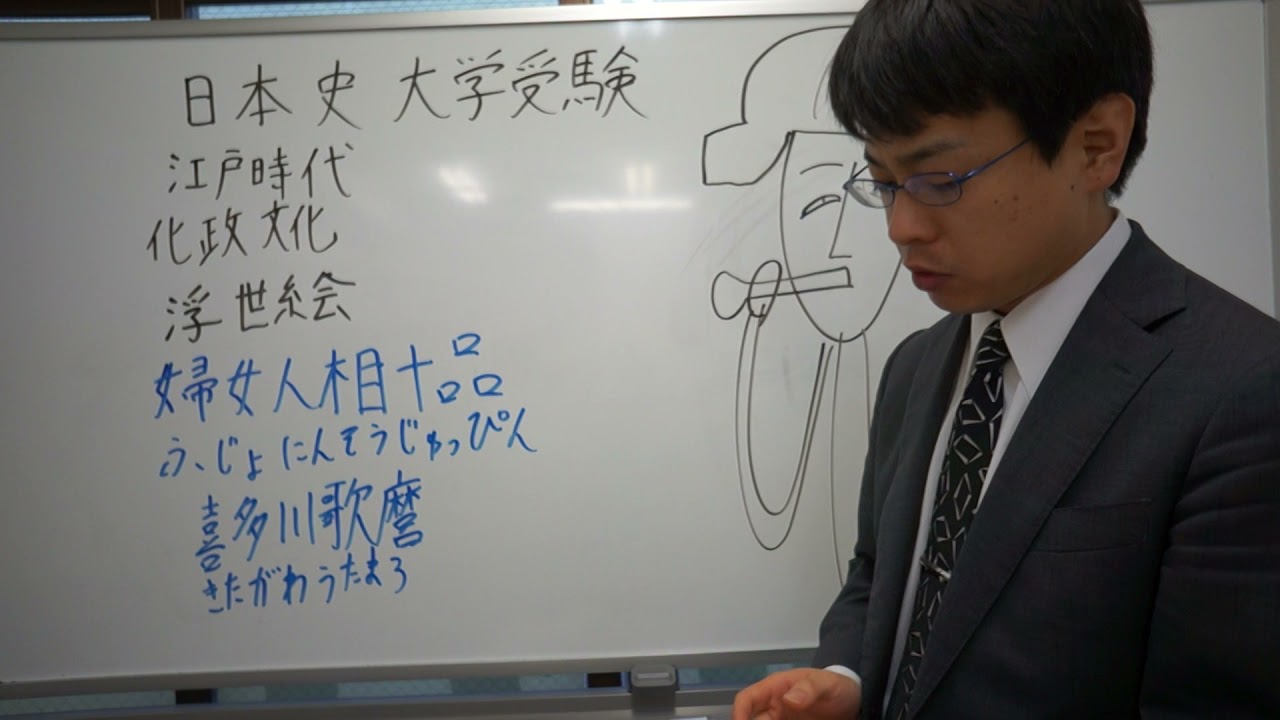 日本史 大学受験
江戸時代
化政文化
浮世絵
婦女人相十品
ふ、じょ にんそうじゅっぴん
喜多川歌麿
きたがわうたまろ